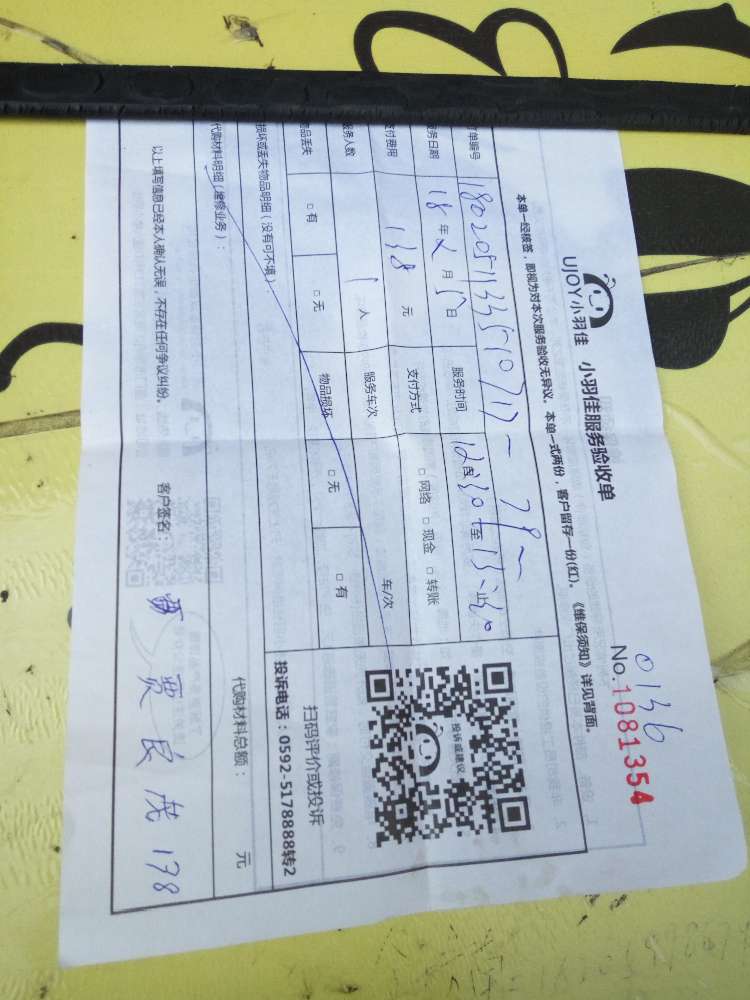 UJOY小羽佳 小羽佳服务验收单
0136
No.1081354
本单一经核签，即视为对本次服务验收无异议。本单一式两份，客户留存一份(红)。《维保须知》详见背面。
单编号
务日期 18年2月5日 服务时间 12:30至13:30止
付费用 138元 支付方式 □网络 □现金 □转账
务人数 1人 服务车次 车/次
品丢失 □有 □无 物品损坏 □无 □有
投诉或建议
扫码评价或投诉
投诉电话：0592-5178888转2
损坏或丢失物品明细（没有可不填）：
代购材料明细（维修业务）： 代购材料总额： 元
以上填写信息已经本人确认无误，不存在任何争议纠纷。 客户签名： 贾良茂 138